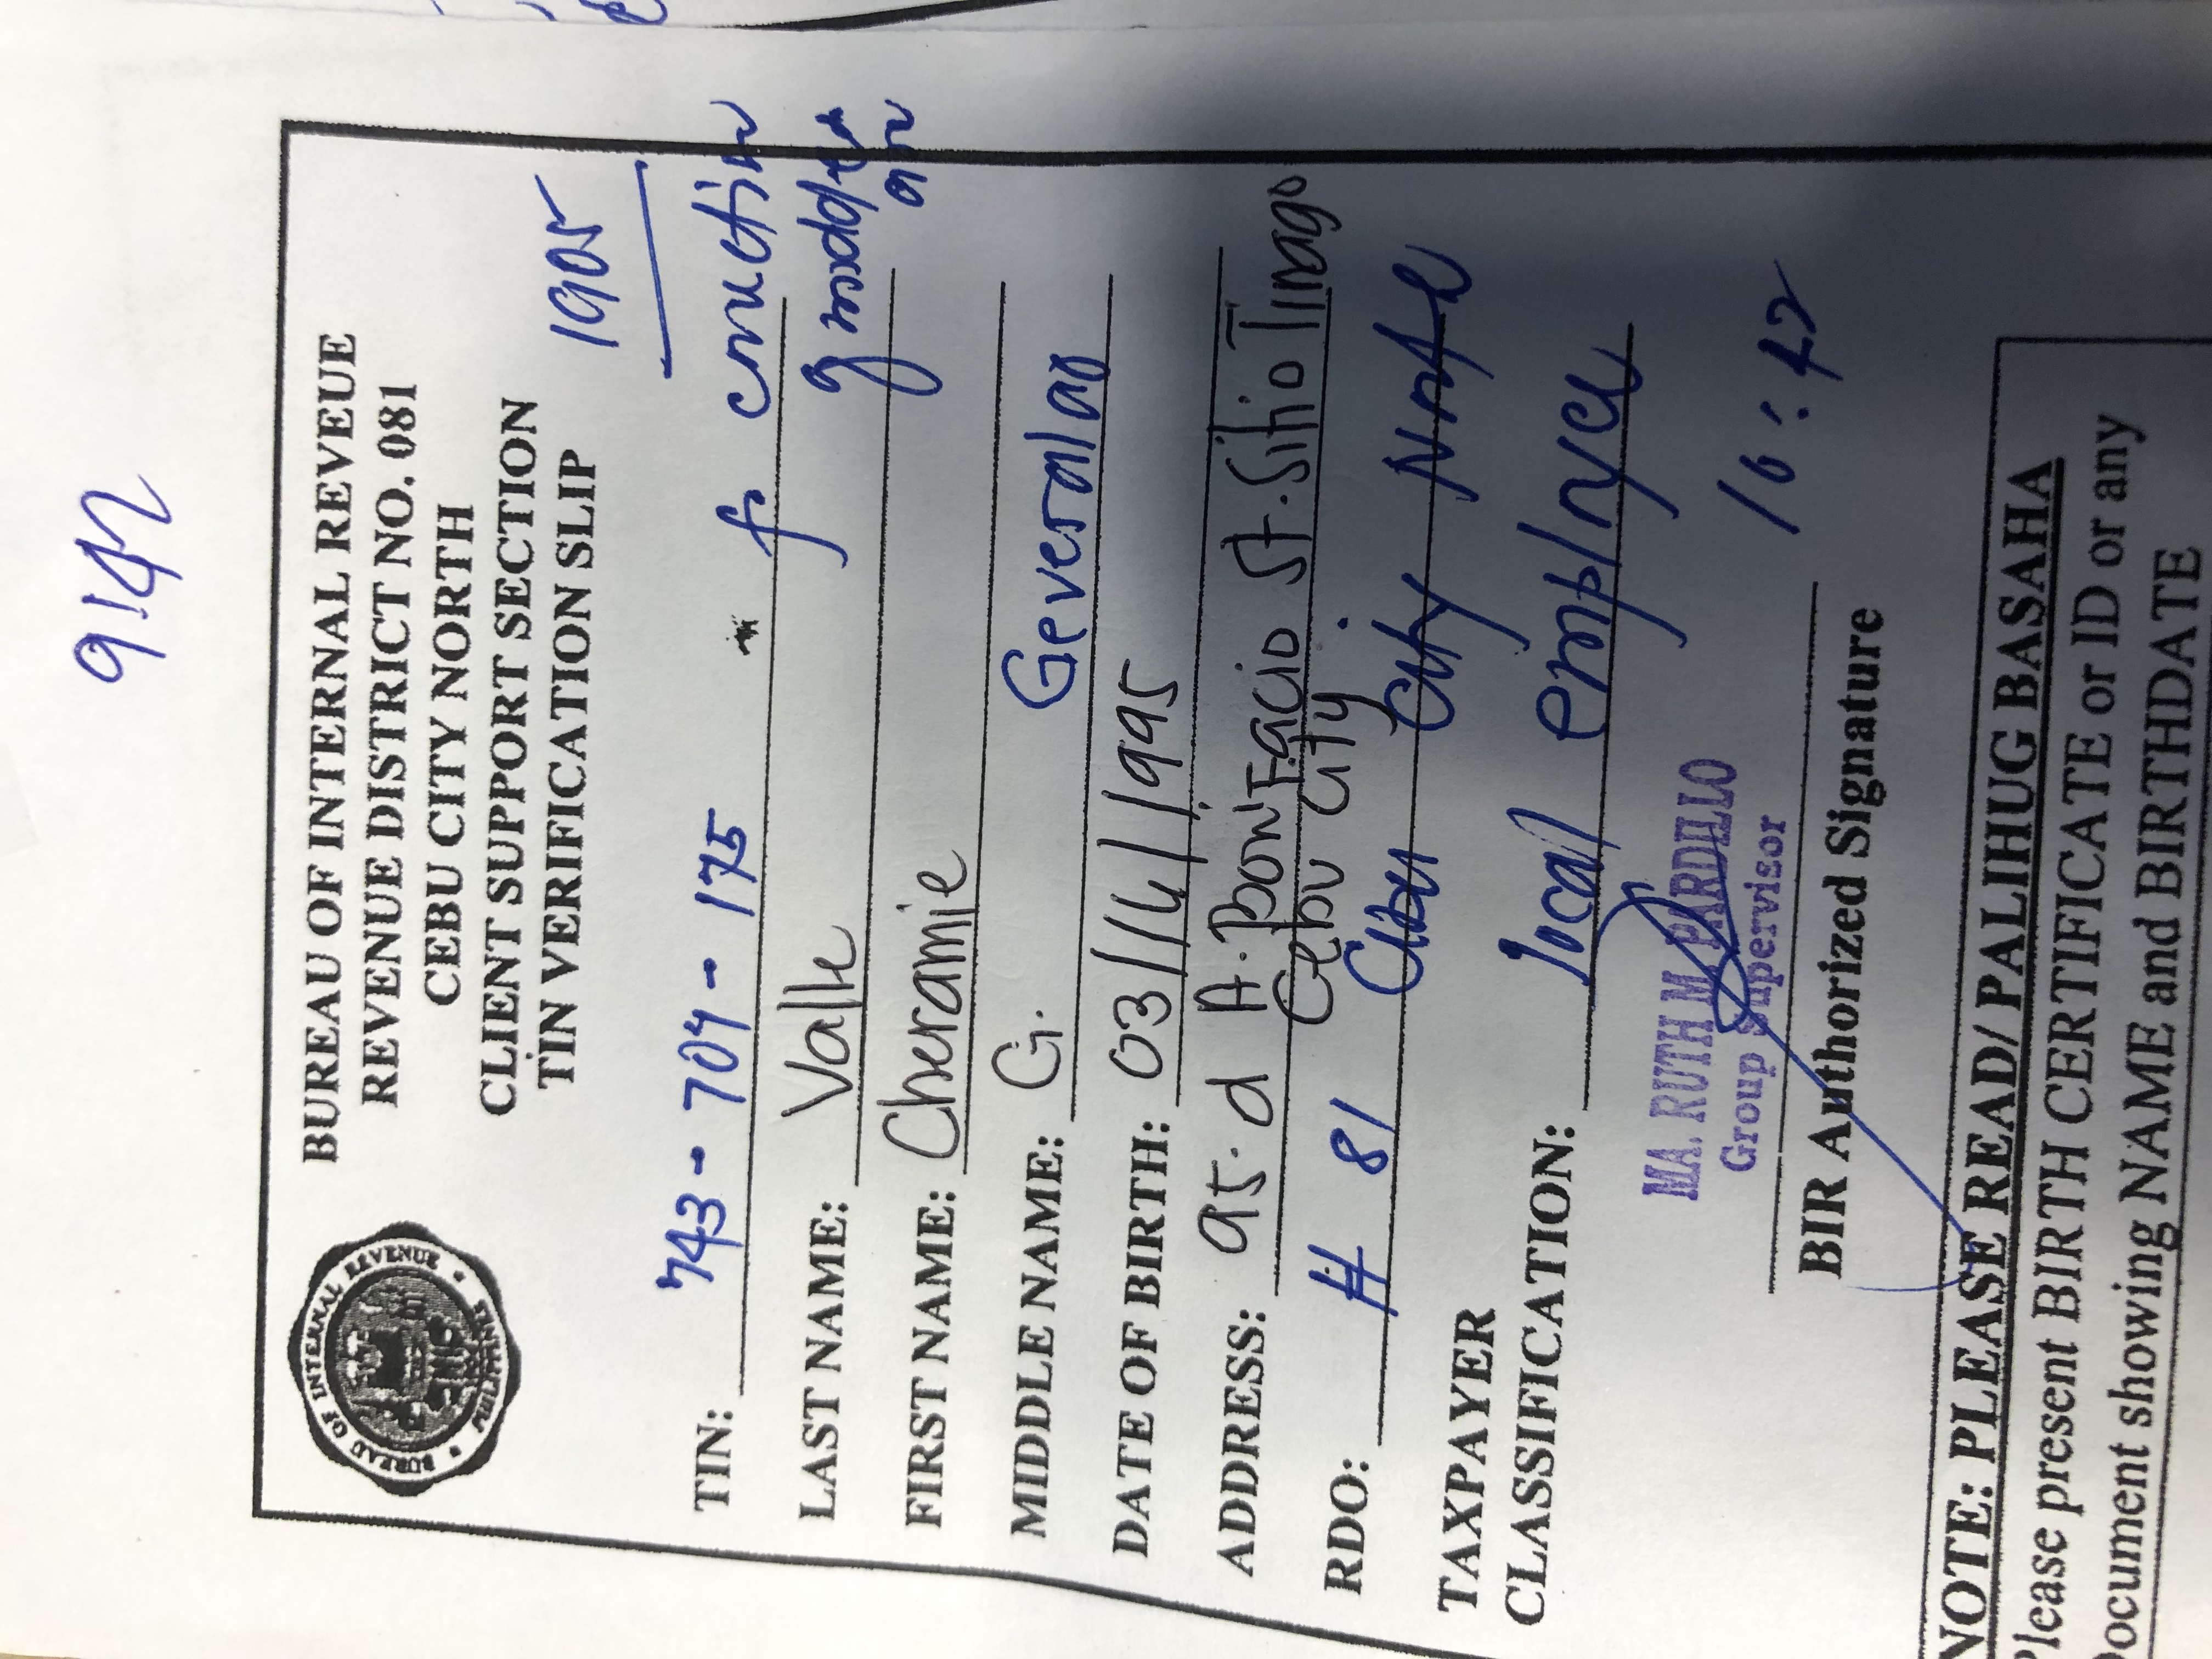 9142
BUREAU OF INTERNAL REVEUE
REVENUE DISTRICT NO. 081
CEBU CITY NORTH
CLIENT SUPPORT SECTION
TIN VERIFICATION SLIP
BUREAU OF INTERNAL REVENUE
PHILIPPINES
1905
TIN: 743-709-175
LAST NAME: Valle
FIRST NAME: Cheramie
MIDDLE NAME: G. Geveralao
DATE OF BIRTH: 03/16/1995
ADDRESS: 95.d A. Bonifacio St. Sitio Tinago
Cebu City
RDO: # 81 Cebu City North
TAXPAYER
CLASSIFICATION: local employee
MA. RUTH M. PARDILLO
Group Supervisor
10:42
BIR Authorized Signature
NOTE: PLEASE READ/ PALIHUG BASAHA
Please present BIRTH CERTIFICATE or ID or any
Document showing NAME and BIRTHDATE